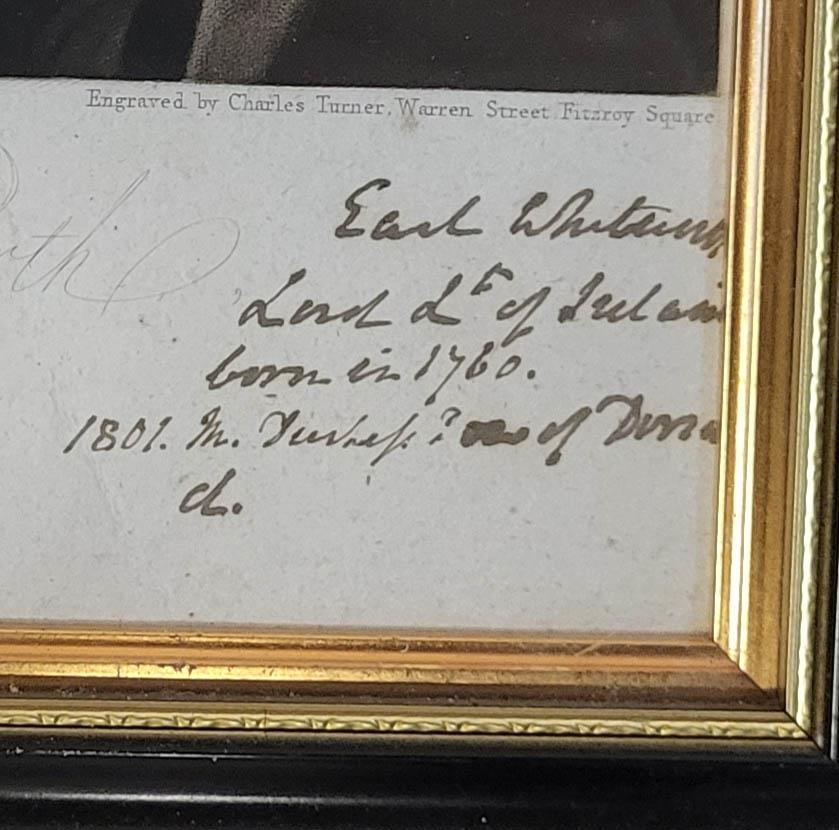 Engraved by Charles Turner, Warren Street Fitzroy Square
Earl Whitwor
Lord Lt of Irelan
born in 1760.
1801. M. Duchess of Dors
d.